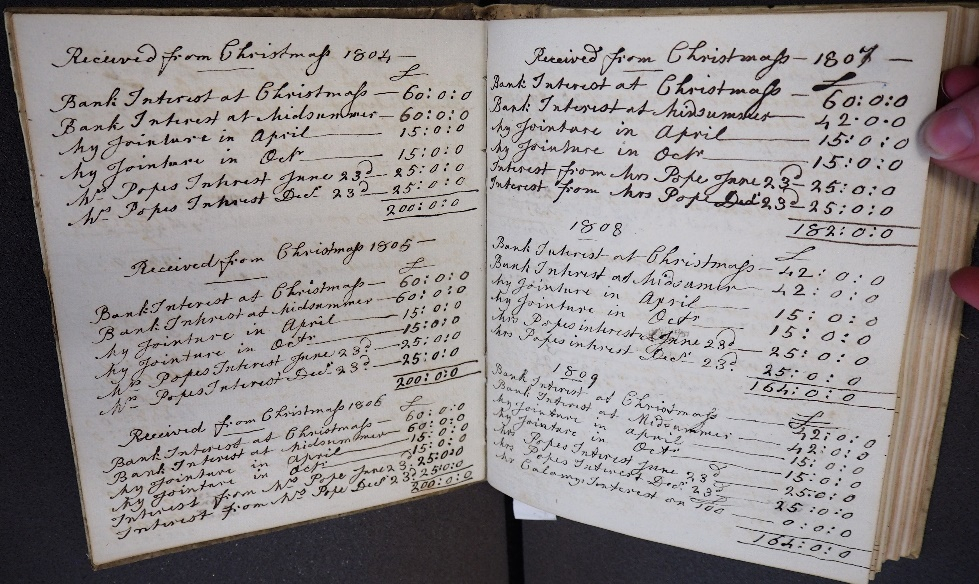 Received from Christmass 1804 —
£
Bank Interest at Christmass — 60:0:0
Bank Interest at Midsummer — 60:0:0
My Jointure in April — 15:0:0
My Jointure in Octr — 15:0:0
Mrs Popes Interest June 23d — 25:0:0
Mrs Popes Interest Decr 23d — 25:0:0
200:0:0
Received from Christmass 1805 —
£
Bank Interest at Christmass — 60:0:0
Bank Interest at Midsummer — 60:0:0
My Jointure in April — 15:0:0
My Jointure in Octr — 15:0:0
Mrs Popes Interest June 23d — 25:0:0
Mrs Popes Interest Decr 23d — 25:0:0
200:0:0
Received from Christmass 1806
£
Bank Interest at Christmass — 60:0:0
Bank Interest at Midsummer — 60:0:0
My Jointure in April — 15:0:0
My Jointure in Octr — 15:0:0
Interest from Mrs Pope June 23d 25:0:0
Interest from Mrs Pope Decr 23d 25:0:0
200:0:0
Received from Christmass — 1807 —
£
Bank Interest at Christmass — 60:0:0
Bank Interest at Midsummer — 42:0:0
My Jointure in April — 15:0:0
My Jointure in Octr — 15:0:0
Interest from Mrs Pope June 23d — 25:0:0
Interest from Mrs Pope Decr 23d — 25:0:0
182:0:0
1808
£
Bank Interest at Christmass — 42:0:0
Bank Interest at Midsummer — 42:0:0
My Jointure in April — 15:0:0
My Jointure in Octr — 15:0:0
Mrs Popes interest June 23d — 25:0:0
Mrs Popes interest Decr 23d — 25:0:0
164:0:0
1809
£
Bank Interest at Christmass — 42:0:0
Bank Interest at Midsummer — 42:0:0
My Jointure in April — 15:0:0
My Jointure in Octr — 15:0:0
Mrs Popes Interest June 23d — 25:0:0
Mrs Popes Interest Decr 23d — 25:0:0
Mr Calamy Interest on 100 — 0:0:0
164:0:0